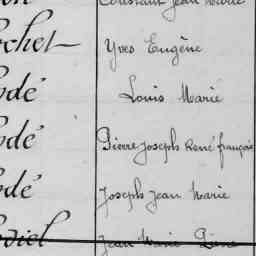 Constant Jean Marie
ochet Yves Eugène
odé Louis Marie
odé Pierre Joseph René françois
odé Joseph Jean Marie
odiel Jean Marie Pierre